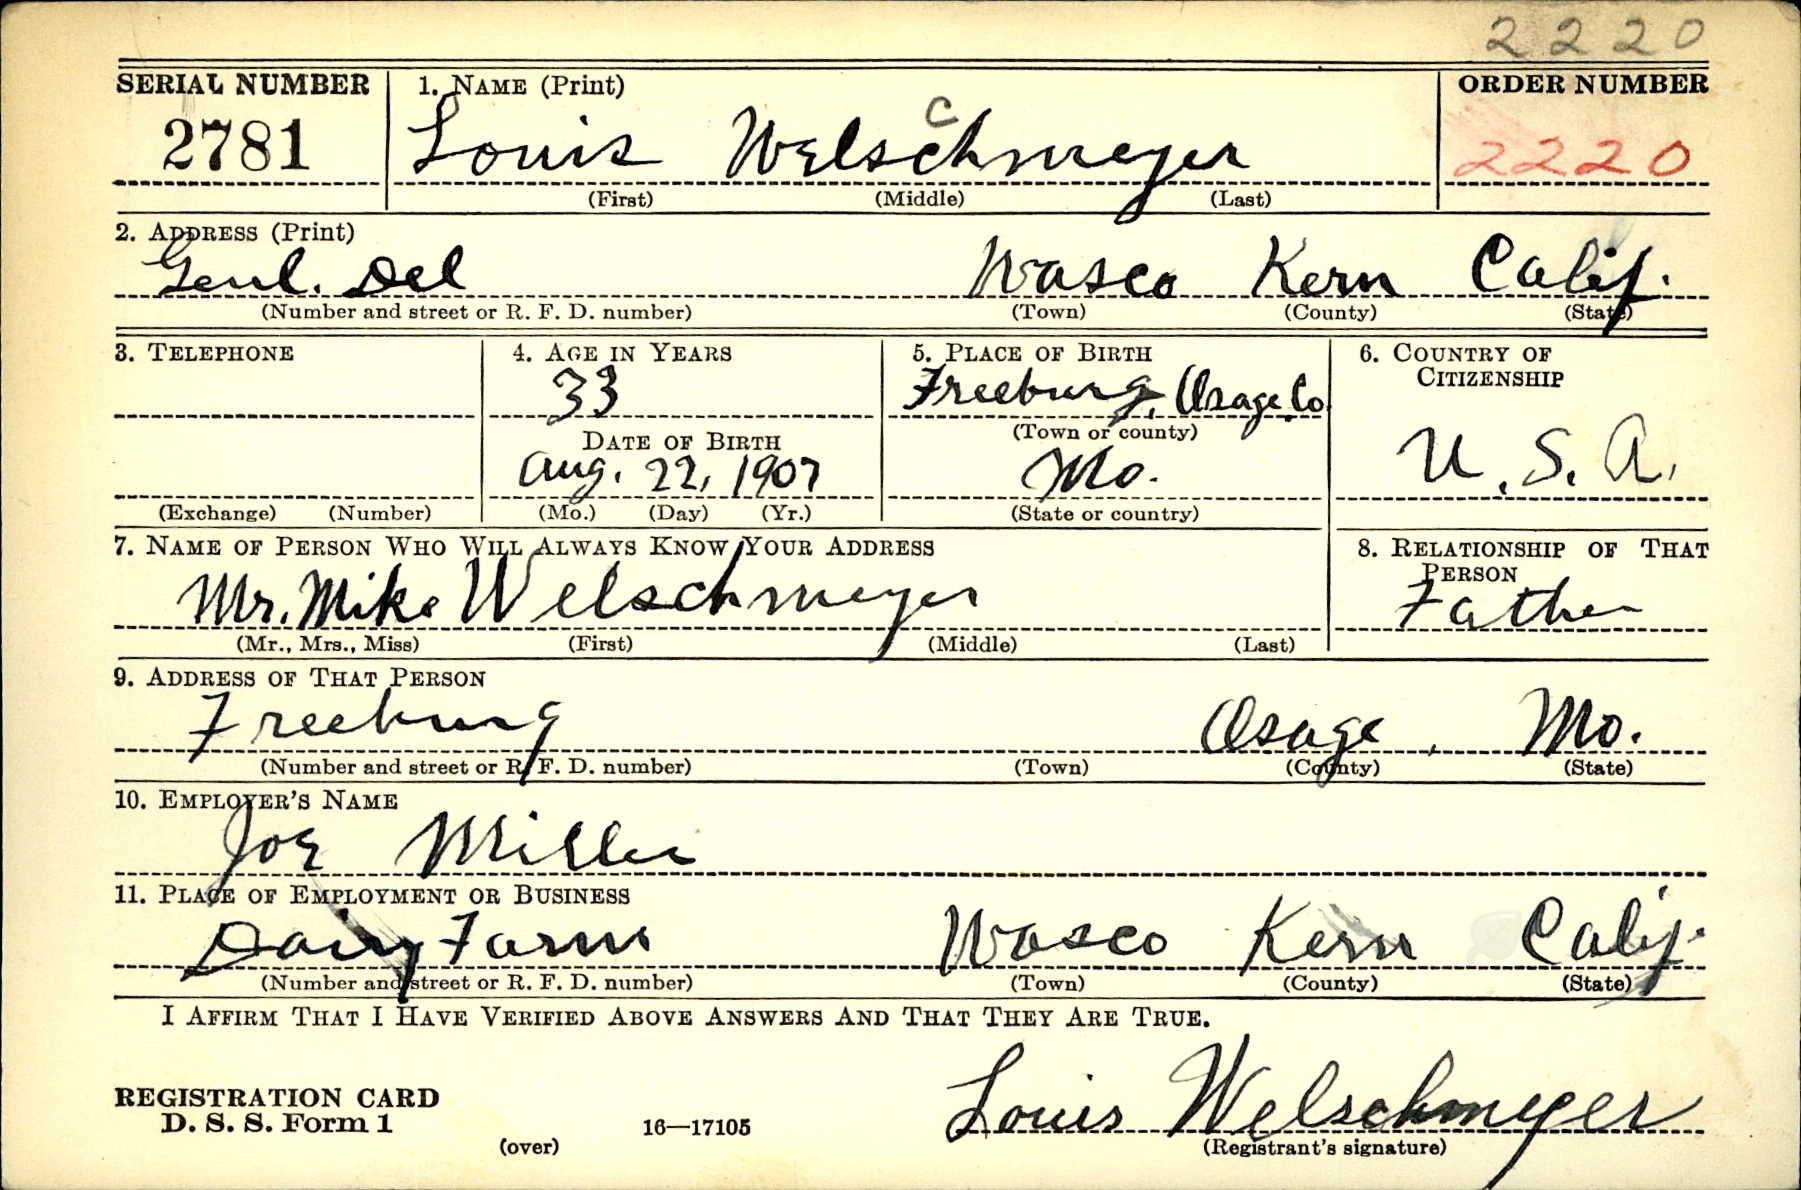 2220
SERIAL NUMBER 1. NAME (Print) ORDER NUMBER
2781 Louis Welschmeyer 2220
(First) (Middle) (Last)
2. ADDRESS (Print)
Genl. Del Wasco Kern Calif.
(Number and street or R. F. D. number) (Town) (County) (State)
3. TELEPHONE 4. AGE IN YEARS 5. PLACE OF BIRTH 6. COUNTRY OF
CITIZENSHIP
33 Freeburg, Osage Co.
(Town or county)
DATE OF BIRTH
Aug. 22, 1907 Mo. U. S. A.
(Exchange) (Number) (Mo.) (Day) (Yr.) (State or country)
7. NAME OF PERSON WHO WILL ALWAYS KNOW YOUR ADDRESS 8. RELATIONSHIP OF THAT
PERSON
Mr. Mike Welschmeyer Father
(Mr., Mrs., Miss) (First) (Middle) (Last)
9. ADDRESS OF THAT PERSON
Freeburg Osage, Mo.
(Number and street or R. F. D. number) (Town) (County) (State)
10. EMPLOYER'S NAME
Joe Miller
11. PLACE OF EMPLOYMENT OR BUSINESS
Dairy Farm Wasco Kern Calif.
(Number and street or R. F. D. number) (Town) (County) (State)
I AFFIRM THAT I HAVE VERIFIED ABOVE ANSWERS AND THAT THEY ARE TRUE.
Louis Welschmeyer
REGISTRATION CARD
D. S. S. Form 1
(over) 16—17105 (Registrant's signature)